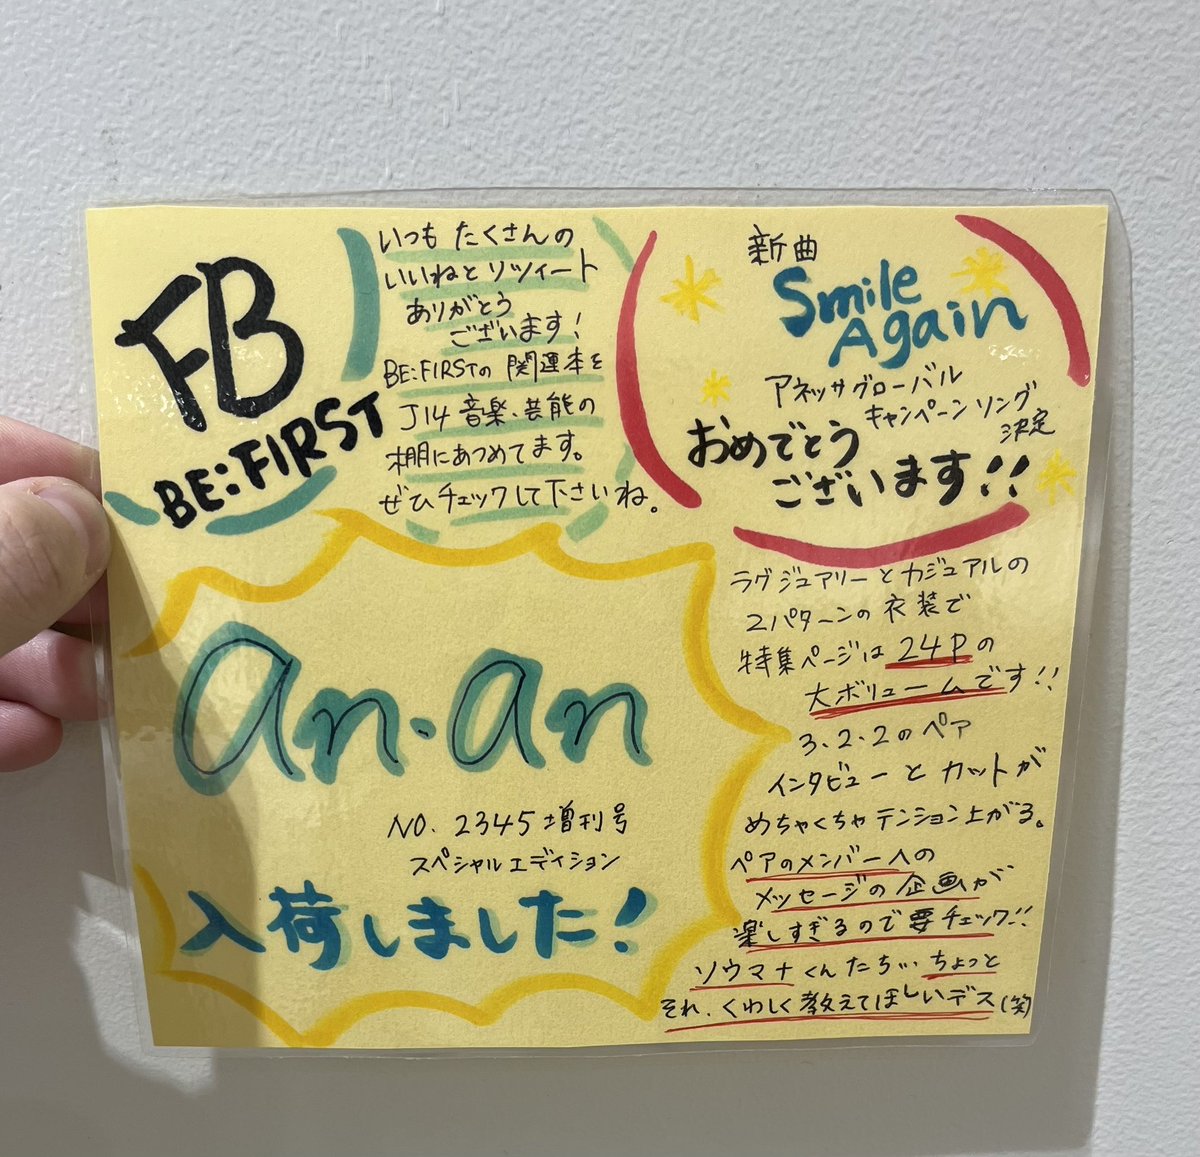 FB
BE:FIRST
いつも たくさんの
いいねとリツィート
ありがとう
ございます!
BE:FIRSTの 関連本を
J14 音楽、芸能の
棚にあつめてます。
ぜひチェックして下さいね。
新曲
Smile
Again
アネッサグローバル
キャンペーンソング
決定
おめでとう
ございます!!
an・an
NO. 2345 増刊号
スペシャルエディション
入荷しました!
ラグジュアリーとカジュアルの
2パターンの衣装で
特集ページは 24Pの
大ボリュームです!!
3・2・2のペア
インタビューとカットが
めちゃくちゃテンション上がる。
ペアのメンバーへの
メッセージの企画が
楽しすぎるので要チェック!!
ソウマナくんたち… ちょっと
それ、くわしく教えてほしいデス(笑)